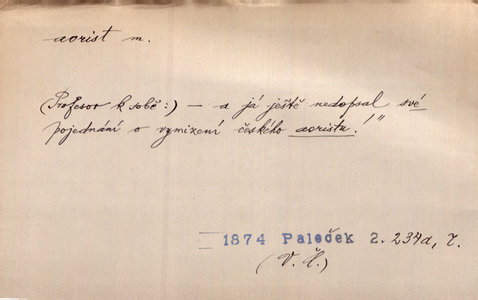 aorist m.
(Profesor k sobě:) — a já ještě nedopsal své
pojednání o vymizení českého aoristu!"
1874 Paleček 2. 234a, ř.
(V. Č.)